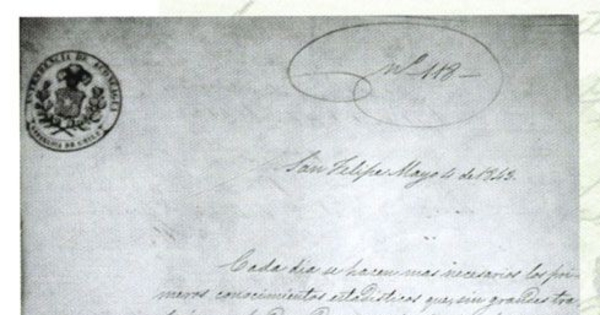 INTENDENCIA DE ACONCAGUA
REPUBLICA DE CHILE
Nº 118
San Felipe Mayo 4 de 1843.
Cada dia se hacen mas necesarios los pri-
meros conocimientos estadisticos que, sin grandes tra,